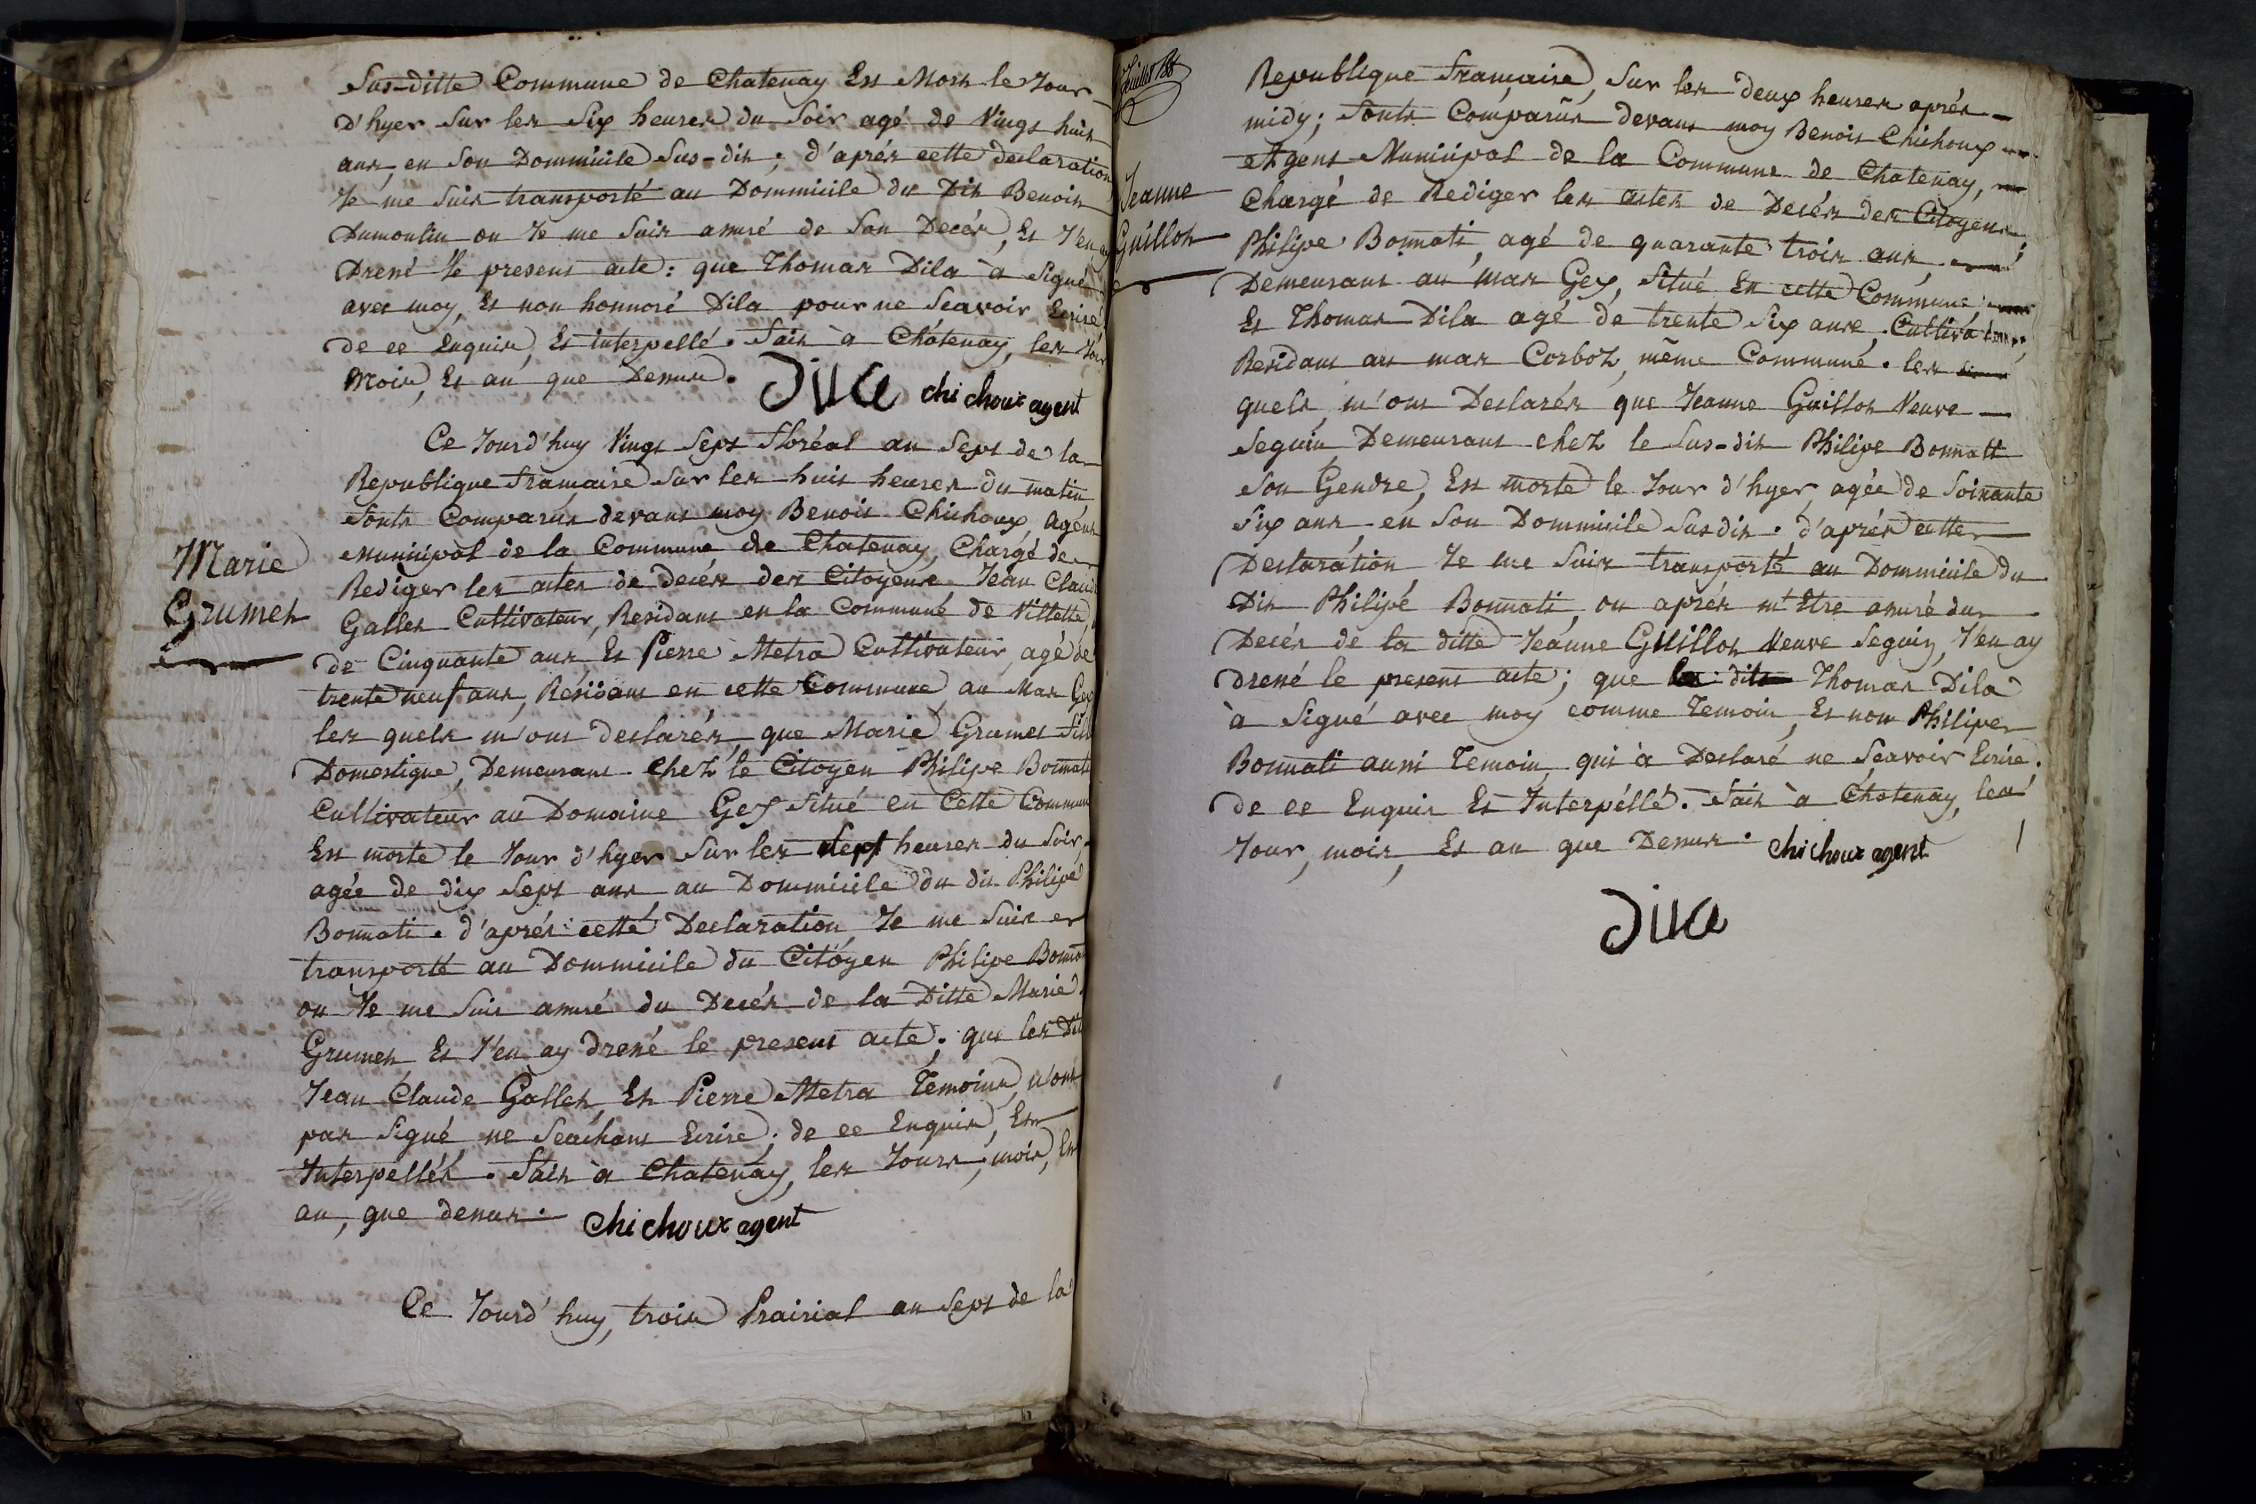 Sus-ditte Commune de Chatenay Est Mort le Jour
D'hyer Sur les Six heures du Soir agé de Vingt huit
ans, en Son Dommicile Sus-dit ; d'aprés cette declaration
Je me suis transporté au Dommicile du Dit Benoit
Dumoulin ou Je me suis assuré de Son Decés, Et J'en ay
Dressé le present acte : que Thomas Dila à Signé
avec moy, Et non honnoré Dila pour ne Scavoir Ecrire
de ce Enquis, Et interpellé. Fait à Chátenay, les Jour
Mois, Et an que Dessus. Dila chichoux agent
Ce Jourd'huy Vingt Sept floréal an Sept de la
Republique Francaise Sur les huit heures du matin
Sonts Comparus devant moy Benoit Chichoux Agent
Municipal de la Commune de Chatenay, Chargé de
Rediger les actes de decés des Citoyens Jean Claude
Marie
Grumet
Gallet Cultivateur, Residant en la Commune de Villette
de Cinquante ans, Et Pierre Metra Cultivateur, agé de
trente neuf ans, Residant en cette Commune au Mas Gex
les quels m'ont declarés, que Marie Grumet fille
Domestique, Demeurant chez le Citoyen Philipe Bonnati
Cultivateur au Domaine Gex Situé en Cette Commune
Est morte le Jour d'hyer Sur les Sept heures du Soir,
agée de dix Sept ans au Dommicile du dit Philipe
Bonnati. d'aprés cette Declaration Je me suis
transporté au Dommicile du Citoyen Philipe Bonnati
ou Je me suis assuré du Decés de la Ditte Marie
Grumet, Et J'en ay dressé le present acte, que les Dits
Jean Claude Gallet, Et Pierre Metra Témoins, n'ont
pas Signé ne Seachant Ecrire, de ce Enquis, Et
Interpellés. Fait à Chatenay, les Jours, mois, Et
an, que dessus. chichoux agent
Ce Jourd'huy, trois Prairial an Sept de la
Jeanne
Guillot
Republique Francaise, Sur les deux heures aprés
midy ; Sonts Comparus devant moy Benoit Chichoux
Agent Municipal de la Commune de Chatenay,
Chargé de Rediger les actes de Decés des Citoyens
Philipe Bonnati, agé de quarante trois ans,
Demeurant au mas Gex, Situé En cette Commune
Et Thomas Dila agé de trente Six ans, Cultivateur,
Residant au mas Corboz, même Commune. les
quels m'ont Declarés que Jeanne Guillot Veuve
Seguin Demeurant chez le Sus-dit Philipe Bonnatt
Son Gendre, Est morte le Jour d'hyer, agée de Soixante
Six ans, en Son Dommicile Susdit. d'aprés cette
Declaration, Je me suis transporté au Dommicile du
Dit Philipé Bonnati, ou aprés m'Etre assuré du
Decés de la ditte Jeanne Guillot Veuve Seguin, J'en ay
dressé le present acte ; que Thomas Dila
à Signé avec moy comme Temoin, Et non Philipe
Bonnati aussi Temoin, qui à Declaré ne Scavoir Ecrire.
de ce Enquis Et Interpéllé. Fait à Chatenay, les
Jour, mois, Et an que Dessus. chichoux agent
Dila